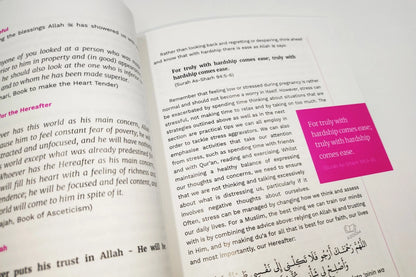 ful
ng the blessings Allah ﷻ has showered on
nyone of you looked at a person who was
or to him in property and (in good) appea
n he should also look at the one who is infe
, and to whom he has been made superior.
ari, Book to make the Heart Tender)
for the Hereafter
ver has this world as his main concern, Allah
ause him to feel constant fear of poverty, he w
racted and unfocused, and he will have nothin
world except what was already predestined fo
Whoever has the Hereafter as his main conce
will fill his heart with a feeling of richness an
endence; he will be focused and feel content, an
vorld will come to him in spite of it.
ajah, Book of Asceticism)
ah
ver puts his trust in Allah - He will be
Rather than looking back and regretting or despairing, think ahead
and know that with hardship there is ease as Allah ﷻ says:
For truly with hardship comes ease, truly with
hardship comes ease.
(Surah Ash-Sharh 94:5-6)
Remember that feeling low or stressed during pregnancy is rather
normal and should not become a worry in itself. However, stress can
be exacerbated by spending time thinking about situations that are
stressful, not making time to relax and by taking on too much. The
strategies outlined above as well as in the next
section are practical tips we can all employ in
order to tackle stress aggravators. They also
emphasise activities that take our attention
from stress, such as spending time with friends
and with Qur'an, reading and exercising. Whilst
maintaining a healthy balance of expressing
our thoughts and concerns, we need to ensure
that we are not thinking and talking excessively
about what is distressing us, particularly if it
involves negative thoughts about ourselves.
Often, stress can be managed by changing how we think and assess
our daily lives. For a Muslim, the best thing we can train our minds
with is by combining the advice above; relying on Allah ﷻ and trusting
in Him, and by making du'a for all that is best for our faith, our lives
and most importantly, our Hereafter:
For truly with
hardship comes ease,
truly with hardship
comes ease.
Surah Ash-Sharh 94:5-6
اللَّهُمَّ رَحْمَتَكَ أَرْجُو فَلَا تَكِلْنِي إِلَى نَفْسِي